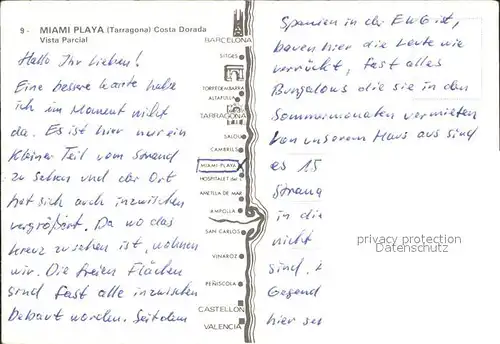 9 - MIAMI PLAYA (Tarragona) Costa Dorada
Vista Parcial
Hallo Ihr Lieben!
Eine bessere Karte habe
ich im Moment nicht
da. Es ist hier nur ein
kleiner Teil vom Strand
zu sehen und der Ort
hat sich auch inzwischen
vergrößert. Da wo das
Kreuz zu sehen ist, wohnen
wir. Die freien Flächen
sind fast alle inzwischen
bebaut worden. Seitdem
BARCELONA
SITGES
TORREDEMBARRA
ALTAFULLA
TARRAGONA
SALOU
CAMBRILS
MIAMI-PLAYA
HOSPITALET del I.
AMETLLA DE MAR
AMPOLLA
SAN CARLOS
VINAROZ
PEÑISCOLA
CASTELLON
VALENCIA
Spanien in der EWG ist,
bauen hier die Leute wie
verrückt, fast alles
Bungalows die sie in den
Sommermonaten vermieten
Von unserem Haus aus sind
es 15
Strand
in die
nicht
sind.
Gegend
hier
privacy protection
oldthing.de